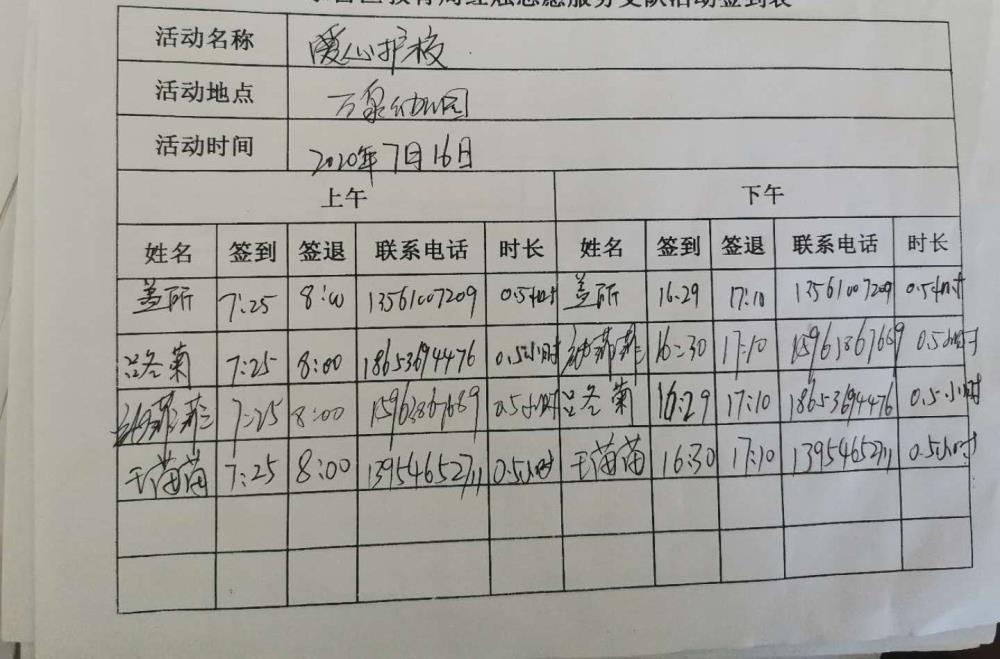 活动名称 暖心护校
活动地点 万泉幼儿园
活动时间 2020年7月16日
上午 下午
姓名 签到 签退 联系电话 时长 姓名 签到 签退 联系电话 时长
盖所 7:25 8:00 13561007209 0.5小时 盖所 16:29 17:10 13561007209 0.5小时
吕冬菊 7:25 8:00 18653694476 0.5小时 菲菲 16:30 17:10 15963867689 0.5小时
菲菲 7:25 8:00 15963867689 0.5小时 吕冬菊 16:29 17:10 18653694476 0.5小时
王苗苗 7:25 8:00 13954652711 0.5小时 王苗苗 16:30 17:10 13954652711 0.5小时